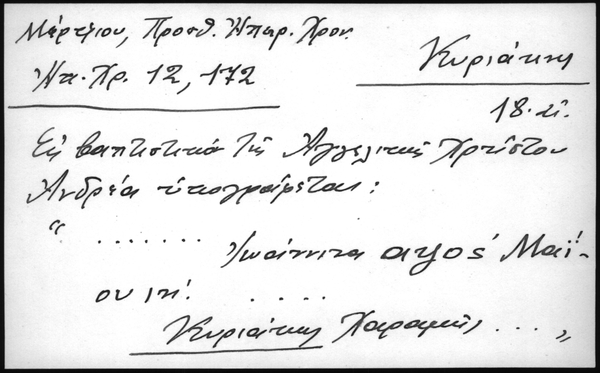 Μέρτζιου, Προσθ. Ηπειρ. Χρον.
Ηπ. Χρ. 12, 172
Κυριάκης
18. αἰ.
Εἰς βαπτιστικὸ τῆς Ἀγγελικῆς Χρήστου
Ἀνδρέα ὑπογράφεται:
“ .......
Ἰωάννινα αψος´ Μαΐ-
ου ιη´. ....
Κυριάκης Χαραμῆς ... „